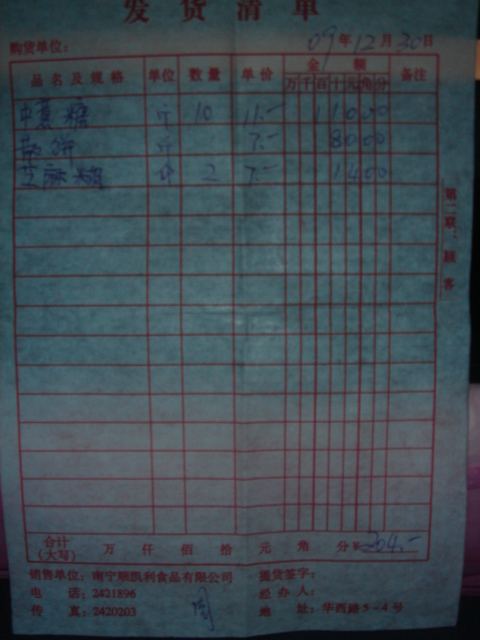 发货清单
购货单位： 09年12月30日
品名及规格 单位 数量 单价 金额 备注
万千百十元角分
糖 斤 10 11.- 11000
饼 斤 7.- 8000
芝麻糖 斤 2 7.- 1400
第二联：顾客
合计（大写） 万 仟 佰 拾 元 角 分 ¥204.-
销售单位：南宁顺凯利食品有限公司 提货签字：
电话：2421896 经办人：
传真：2420203 地址：华西路5-4号